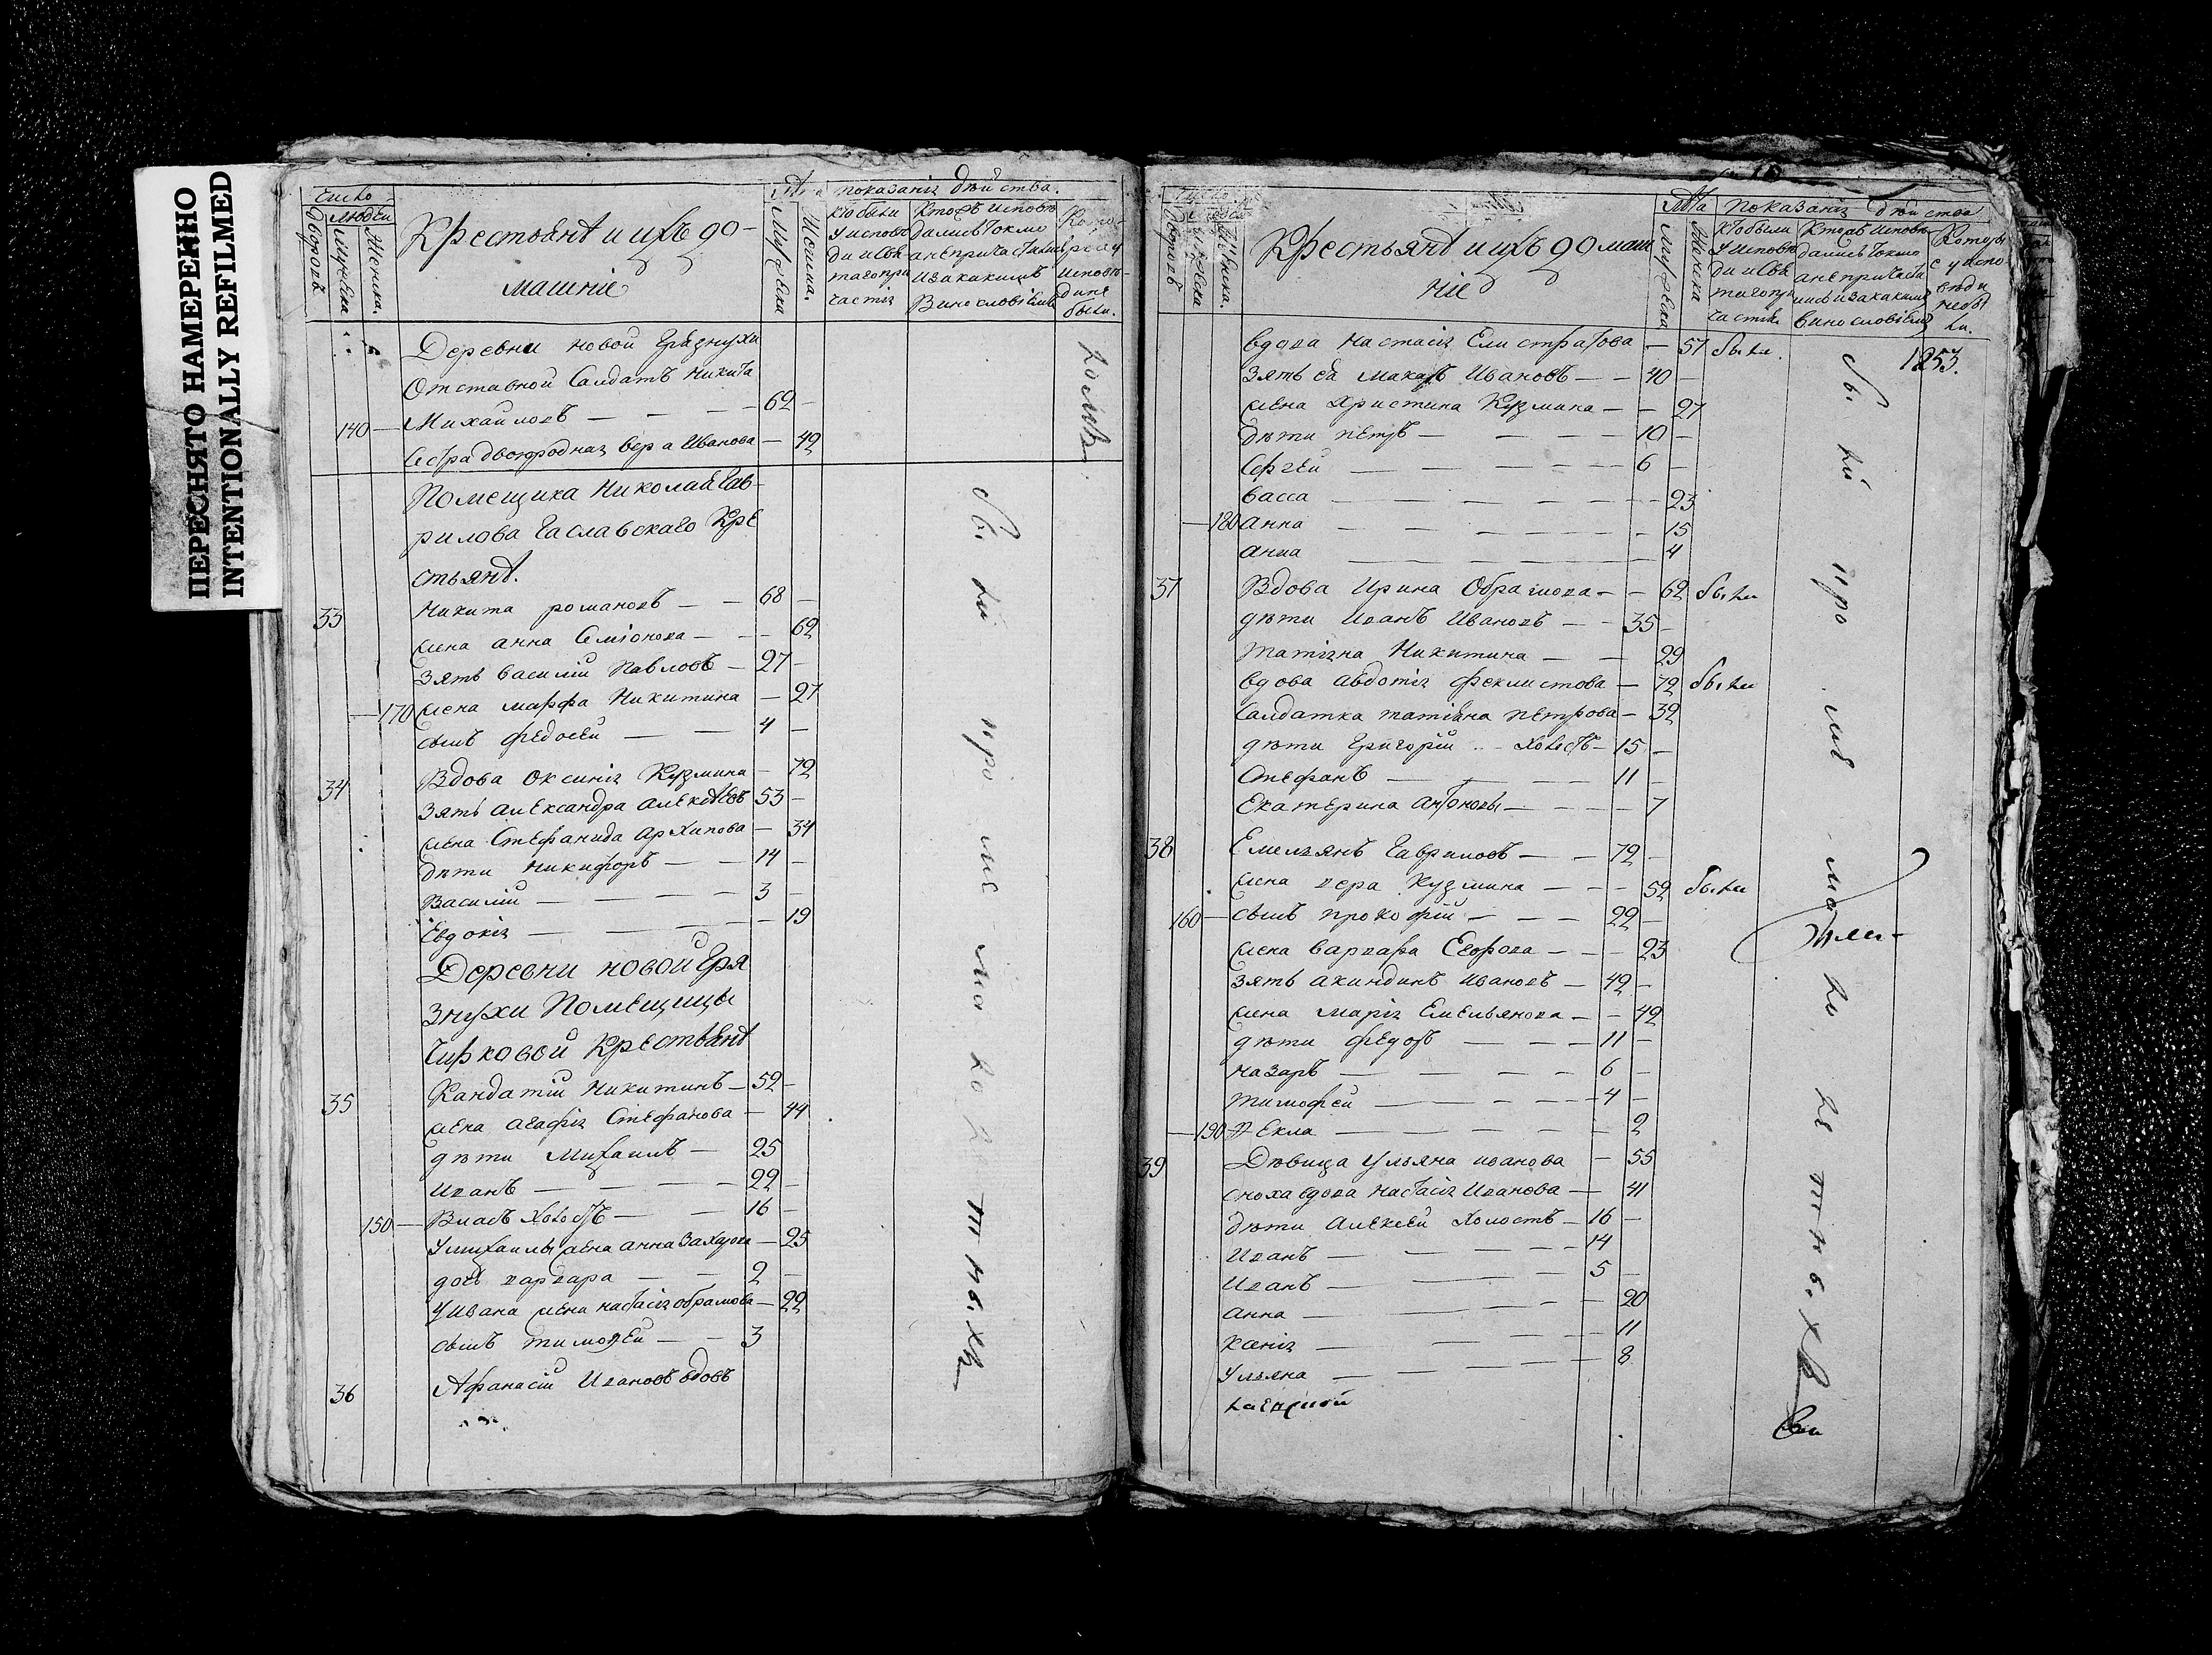 ПЕРЕСНЯТО НАМЕРЕННО
INTENTIONALLY REFILMED
число
людей
дворовъ
мужска
женска.
Крестьянѣ и ихъ до-
машніе
Лѣ
мужска
женска.
показаніѧ дѣйства.
кто были
у исповѣ
ди и свѣ
таго при
частіѧ
кто исповѣ
дались токмо
а не причастил
и за какимъ
винословіемъ
Кото
рые у
исповѣ-
ди не
были.
Деревни новой Грязнухи
Отставной Салдатъ Никита
140 — Михайловъ — — — 62 —
сестра двоюроднаѧ вера Иванова — 42
Помещика Николаѧ Гав-
рилова Гаславскаго Кре
стьянѣ.
33 Никита романовъ — — 68 —
жена анна Семіонова — — — 62
зять василій Павловъ — 27 —
— 170 жена марфа Никитина — 27
сынъ федосей — — 4 —
34 Вдова Оксиніѧ Кузмина — 72
Зять александра алексѣевъ 53 —
жена Стефанида архипова — 34
дѣти Никифоръ — — 14 —
Василій — — — 3 —
Евдокіѧ — — — — 19
Деревни новой Гря
знухи Помещицы
Чирковой Крестьянѣ
35 Кандатій Никитинъ — 52 —
жена агафіѧ Стефанова — 44
дѣти Михаилъ — 25
Иванъ — — — — 22 —
150 — Власъ холостъ — — 16 —
У михаилы жена анна Захарова — 25
дочь варвара — — 2 —
У ивана жена настасіѧ обрамова — 22
сынъ тимофей — — 3
36 Афанасій Ивановъ вдовъ
были при не мо ло лѣтныхъ
Крестьянѣ и ихъ домаш
ніе
Лѣта
мужска
женска
показаніѧ дѣйства
кто были
у исповѣ
ди и свѣ
таго при
частіѧ
кто исповѣ
дались токмо
а не причасти
лись и за какимъ
винословіемъ
Которы
е у испо
вѣди
не бы
ли.
1253.
вдова настасіѧ Елистратова — 57 были.
зять еѧ макаръ Ивановъ — — 40 —
жена христина Кузмина — — 27
дѣти петръ — — — — 10 —
Сергей — — — — 6 —
васса — — — — — 23
— 180 анна — — — — — 15
анна — — — — — 4
37 Вдова Ирина Обрамова — — 62 были
дѣти Иванъ Ивановъ — — 35 —
татіѧна Никитина — — 29
вдова авдотіѧ феклистова — 72 были
салдатка татіѧна петрова — 32
дѣти григорій — холостъ — 15 —
Стефанъ — — — — 11 —
Екатерина антоновы — — — 7
38 Емельянъ Гавриловъ — — 72 —
жена вера Кузмина — — — 52 были
160 — сынъ прокофій — — — 22 —
жена варвара Егорова — — — 23
зять акиндинъ ивановъ — 42 —
жена маріѧ Емельянова — — 42
дѣти федоръ — — — 11 —
назаръ — — — — 6 —
тимофей — — — — 4 —
— 190 Фекла — — — — — 2
39 Дѣвица ульяна иванова — 55
сноха вдова настасіѧ Иванова — 41
дѣти алексей холостъ — 16 —
Иванъ — — — — 14
Иванъ — — — — 5 —
анна — — — — — 20
Ксеніѧ — — — — — 11
Ульяна — — — — — 8